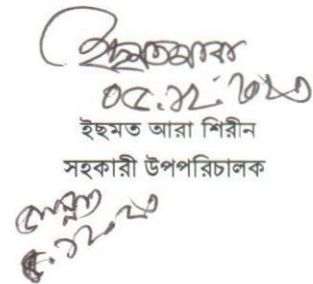 ইছমত আরা
০৫.১২.২০২৩
ইছমত আরা শিরীন
সহকারী উপপরিচালক
৫.১২.২৩